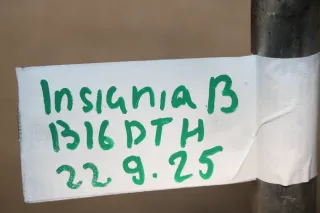 Insignia B
B16DTH
22 9.25